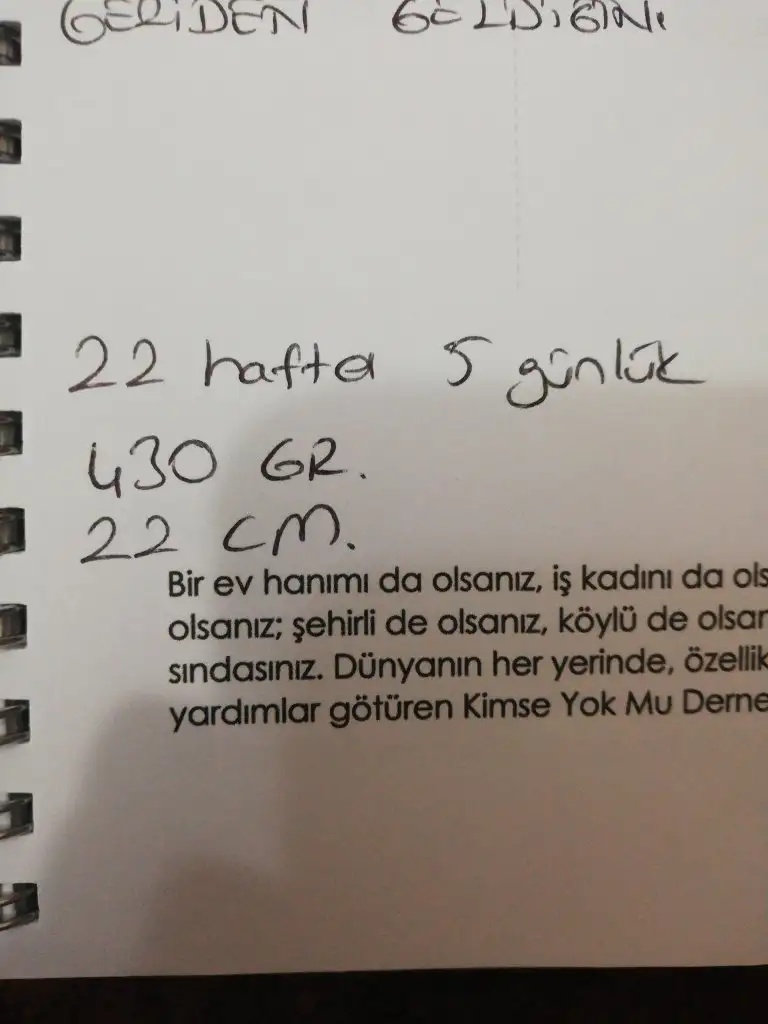 GERİDEN GELDİĞİNİ
22 hafta 5 günlük
430 GR.
22 CM.
Bir ev hanımı da olsanız, iş kadını da ols
olsanız; şehirli de olsanız, köylü de olsan
sındasınız. Dünyanın her yerinde, özellik
yardımlar götüren Kimse Yok Mu Derne